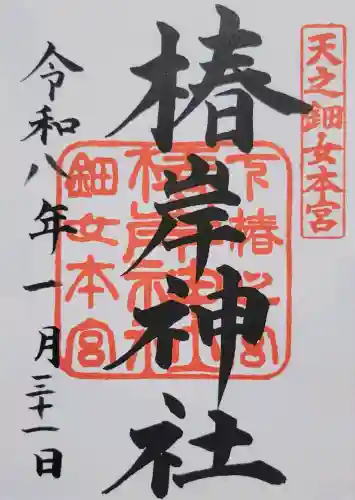 天之鈿女本宮
椿岸神社
下椿岸宮
椿岸神社
鈿女本宮
令和八年一月三十一日